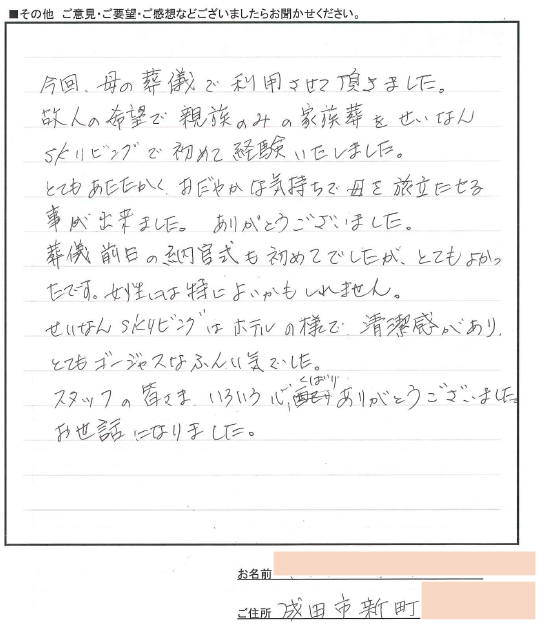 ■その他 ご意見・ご要望・ご感想などございましたらお聞かせください。
今回、母の葬儀で利用させて頂きました。
故人の希望で親族のみの家族葬をせいなん
SKリビングで初めて経験いたしました。
とてもあたたかく、おだやかな気持ちで母を旅立たせる
事が出来ました。 ありがとうございました。
葬儀前日の納官式も初めてでしたが、とてもよかっ
たです。女性には特によいかもしれません。
せいなんSKリビングはホテルの様で、清潔感があり、
とてもゴージャスなふんい気でした。
スタッフの皆さま、いろいろ心くばりありがとうございました。
お世話になりました。
お名前
ご住所 成田市新町